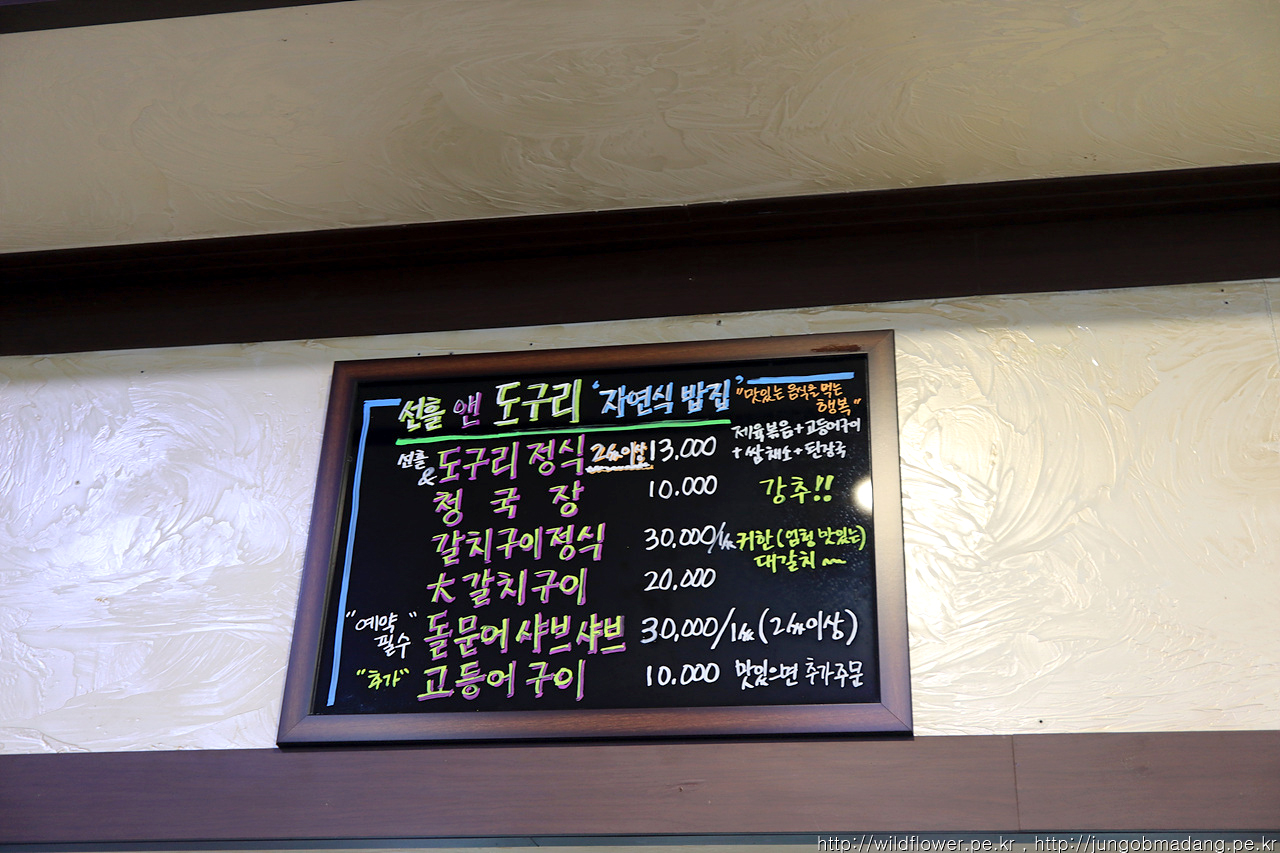 선흘 앤 도구리 '자연식 밥집' "맛있는 음식을 먹는
행복"
선흘 & 도구리 정식 2人이상 13,000 제육볶음+고등어구이
+쌈채소+된장국
청국장 10.000 강추!!
갈치구이정식 30,000/1人 귀한(엄청 맛있는)
대갈치~
大갈치구이 20,000
"예약 필수" 돌문어 샤브샤브 30,000/1人(2人이상)
"추가" 고등어 구이 10.000 맛있으면 추가주문
http://wildflower.pe.kr , http://jungobmadang.pe.kr